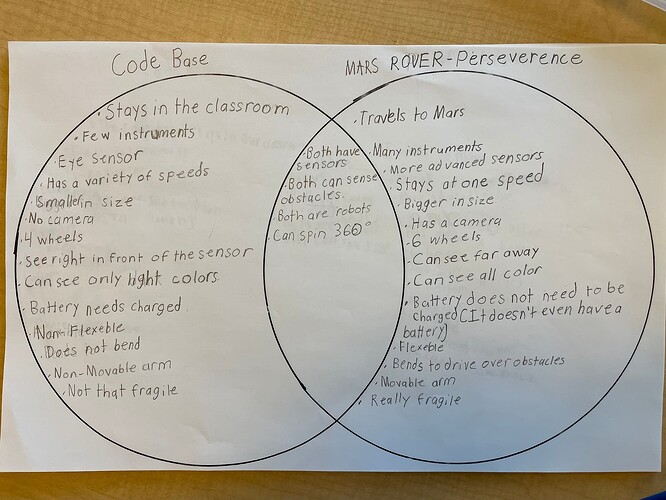 Code Base
MARS ROVER-Perseverence
• Stays in the classroom
• Few instruments
• Eye sensor
• Has a variety of speeds
• Smaller in size
• No camera
• 4 wheels
• see right in front of the sensor
• Can see only light colors
• Battery needs charged
• Non-Flexeble
• Does not bend
• Non-Movable arm
• Not that fragile
• Both have sensors
• Both can sense
obstacles.
• Both are robots
• Can spin 360°
• Travels to Mars
• Many instruments
• More advanced sensors
• Stays at one speed
• Bigger in size
• Has a camera
• 6 wheels
• Can see far away
• Can see all color
• Battery does not need to be
charged (It doesn't even have a
battery)
• Flexeble
• Bends to drive over obstacles
• Movable arm
• Really fragile